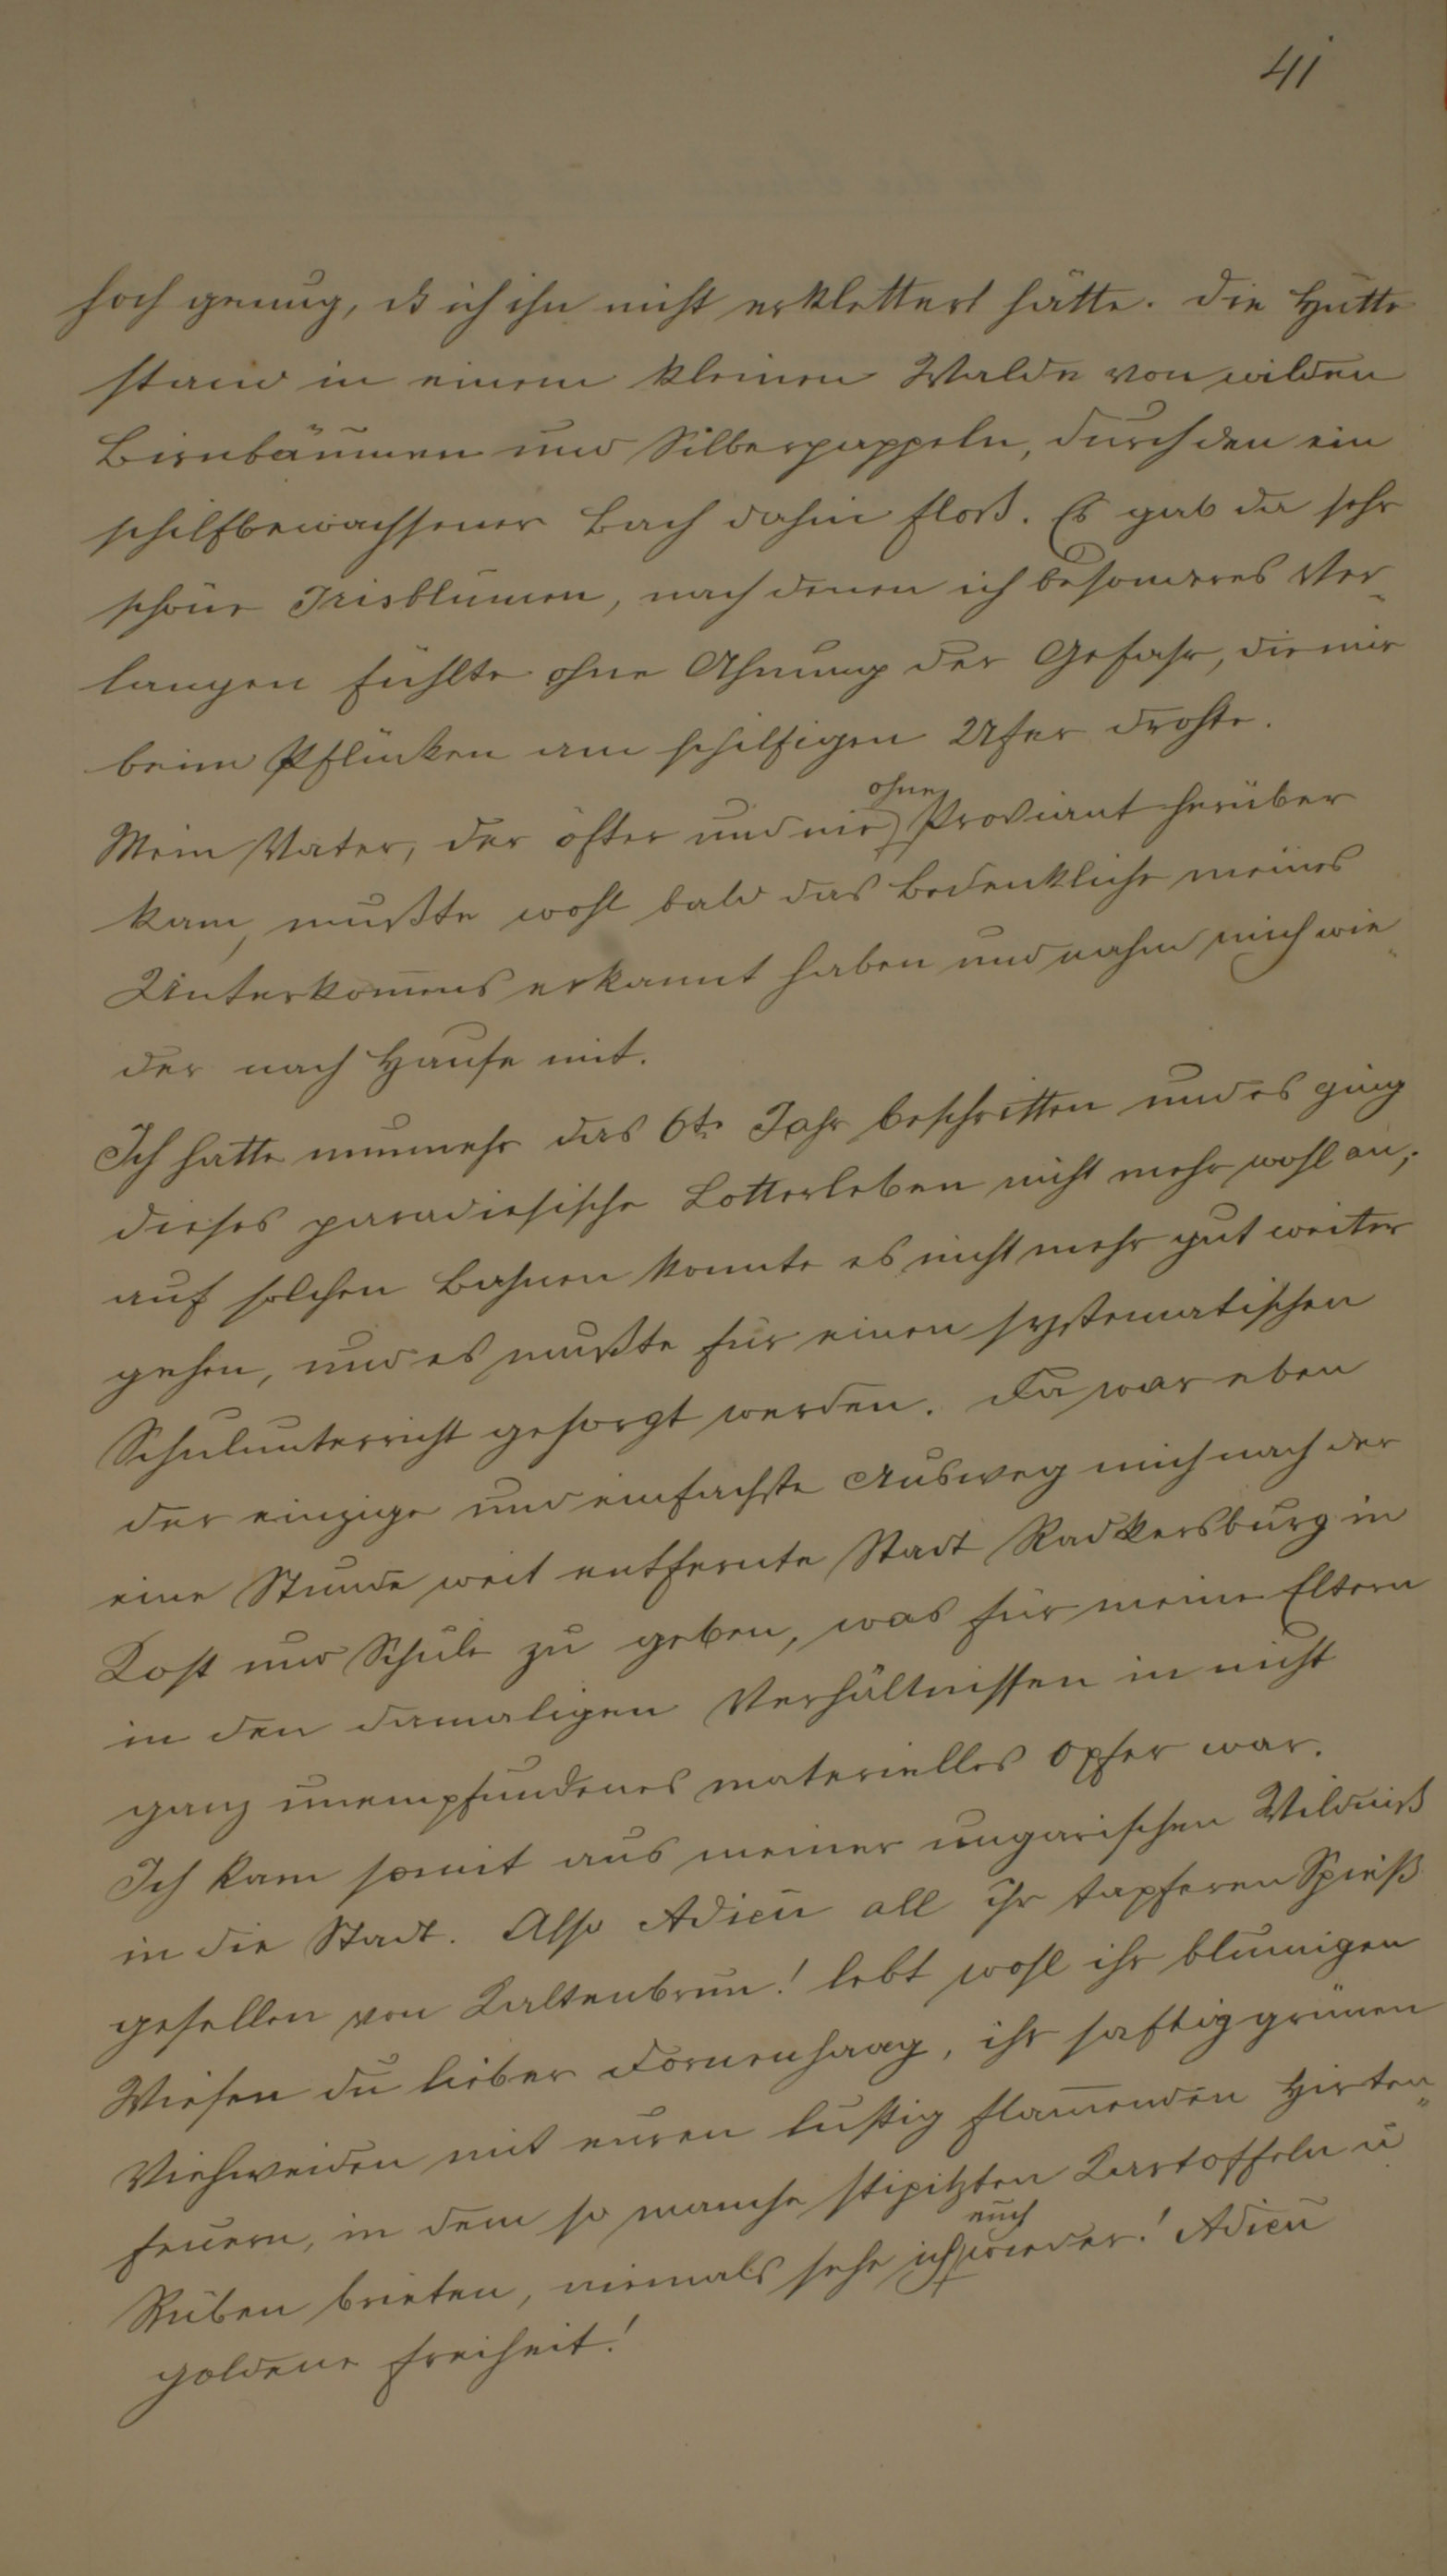 41
hoch genug, dß ich ihn nicht erklettert hätte. Die Hütte
stand in einem kleinen Walde von wilden
Birnbäumen und Silberpappeln, durch den ein
schilfbewachsener Bach dahin floß. Es gab da sehr
schöne Irisblumen, nach denen ich besonderes Ver-
langen fühlte ohne Ahnung der Gefahr, die mir
beim Pflücken am schilfigen Ufer drohte.
ohne
Mein Vater, der öfter und nie Proviant herüber
kam, mußte wohl bald das Bedenkliche meines
Unterkom̅ens erkannt haben und nahm mich wie
der nach Hause mit.
Ich hatte nunmehr das 6te Jahr beschritten und es ging
dieses paradiesische Lotterleben nicht mehr wohl an;
auf solchen Bahnen konnte es nicht mehr gut weiter
gehen, und es mußte für einen systematischen
Schulunterricht gesorgt werden. Da war eben
der einzige und einfachste Ausweg mich nach der
eine Stunde weit entfernte Stadt Radkersburg in
Kost und Schule zu geben, was für meine Eltern
in den damaligen Verhältnissen in nicht
ganz unempfundenes materielles Opfer war.
Ich kam somit aus meiner ungarischen Wildniß
in die Stadt. Also Adieu all ihr tapferen Spieß
gesellen von Kaltenbrun! lebt wohl ihr blumigen
Wiesen du lieber Dornenhaag, ihr saftig grünen
Viehweiden mit euren lustig flam̅enden Hirten-
feuern, in dem so manche stipitzten Kartoffeln u
euch
Rüben brieten, niemals sehe ich wieder! Adieu
goldene Freiheit!